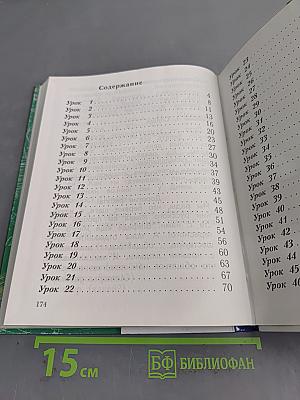 Содержание
Урок 1 . . . . . . . . 4
Урок 2 . . . . . . . . 8
Урок 3 . . . . . . . . 11
Урок 4 . . . . . . . . 13
Урок 5 . . . . . . . . 16
Урок 6 . . . . . . . . 20
Урок 7 . . . . . . . . 23
Урок 8 . . . . . . . . 27
Урок 9 . . . . . . . . 30
Урок 10 . . . . . . . . 34
Урок 11 . . . . . . . . 37
Урок 12 . . . . . . . . 39
Урок 13 . . . . . . . . 43
Урок 14 . . . . . . . . 45
Урок 15 . . . . . . . . 48
Урок 16 . . . . . . . . 51
Урок 17 . . . . . . . . 54
Урок 18 . . . . . . . . 56
Урок 19 . . . . . . . . 60
Урок 20 . . . . . . . . 63
Урок 21 . . . . . . . . 67
Урок 22 . . . . . . . . 70
174
23
Урок 24
Урок 25
Урок 26
Урок 28
Урок 29
Урок 30
Урок 31
Урок 32
Урок 33
Урок 34
Урок 35
Урок 36
Урок 37
Урок 38
Урок 39
Урок 40
Урок 41
Урок 42
Урок 43
Урок 44
Урок 45
Урок 46
15 см
БФ БИБЛИОФАН